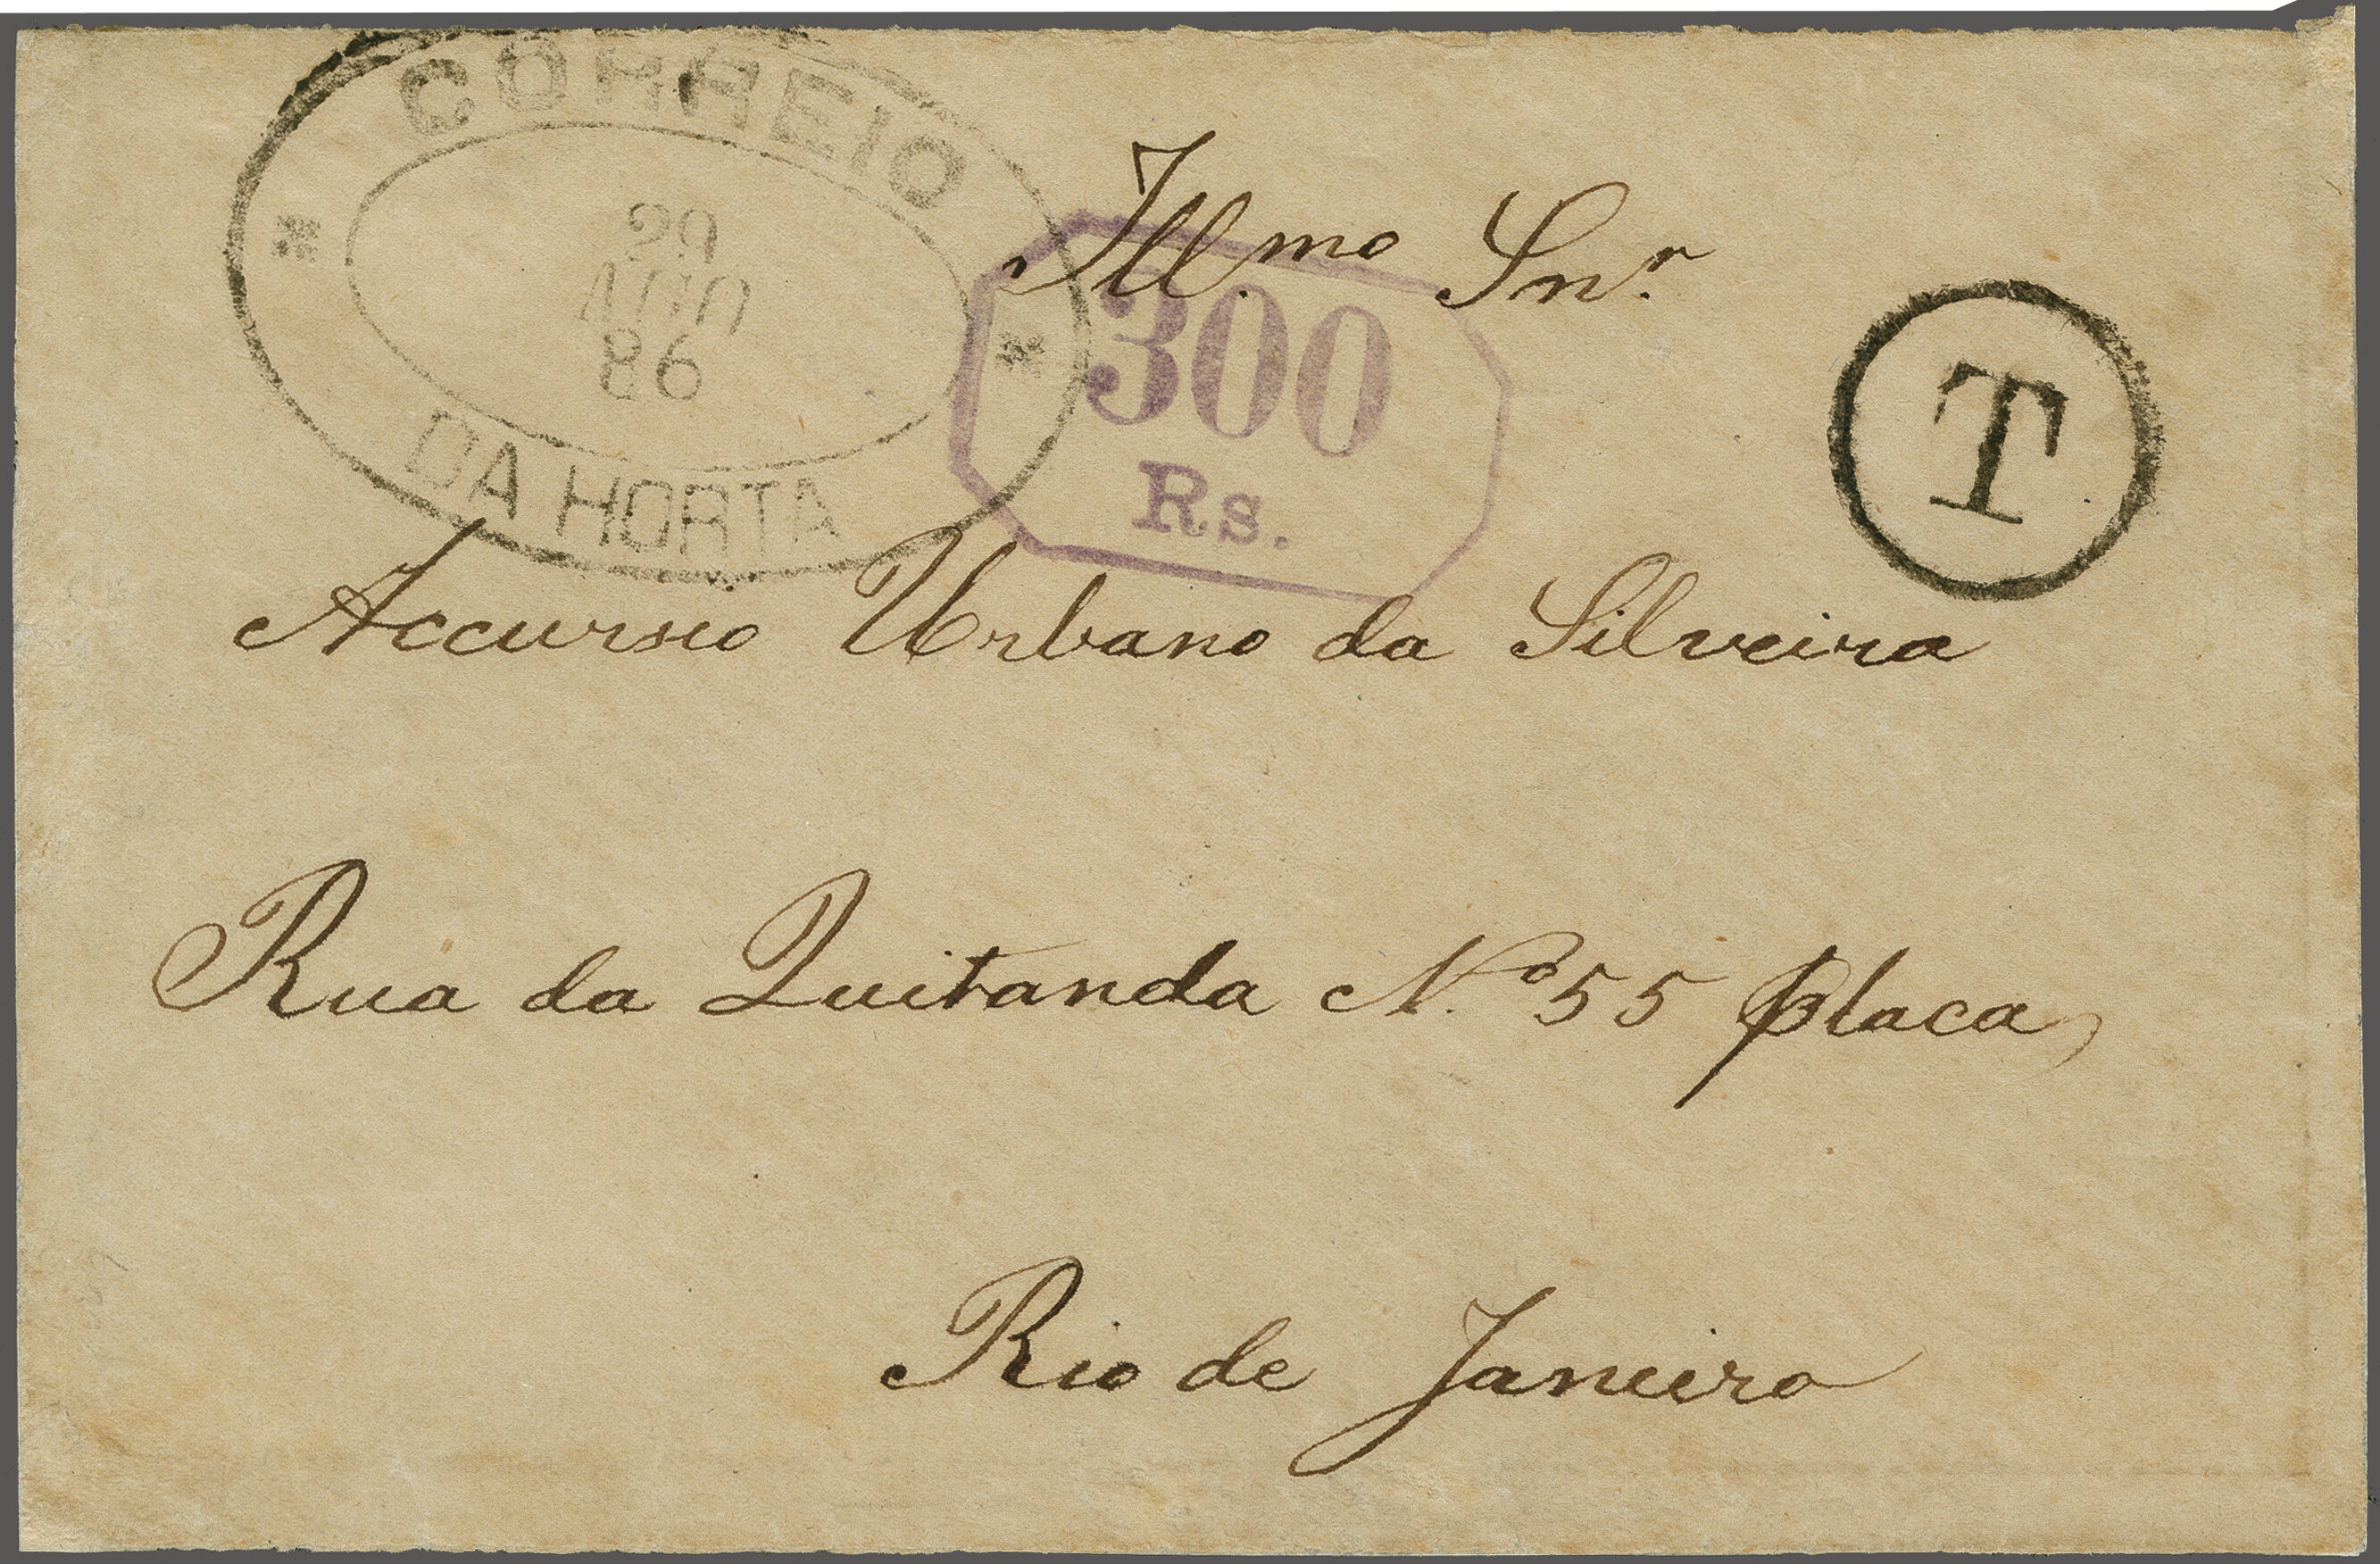 CORREIO
29
AGO
86
DA HORTA
300
Rs.
T
Ill.mo Snr.
Accursio Urbano da Silveira
Rua da Quitanda N.o 55 placa
Rio de Janeiro